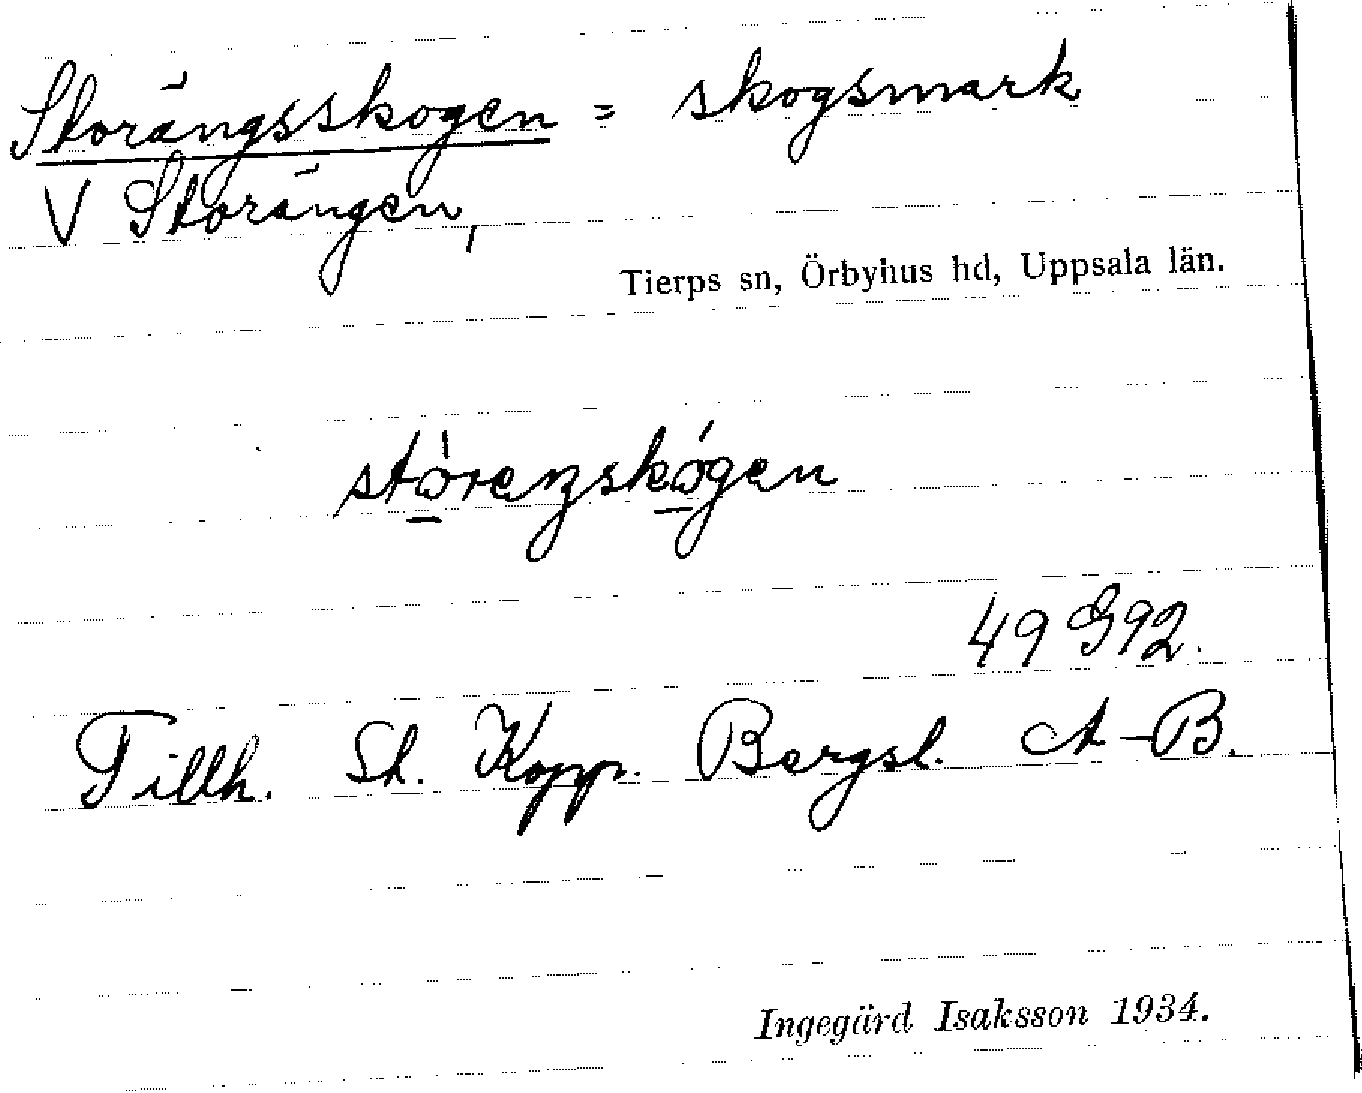 Storängsskogen = skogsmark
V Storängen,
Tierps sn, Örbyhus hd, Uppsala län.
stóreŋskógen
49 G92.
Tillh. St. Kopp. Bergsl. A-B.
Ingegärd Isaksson 1934.